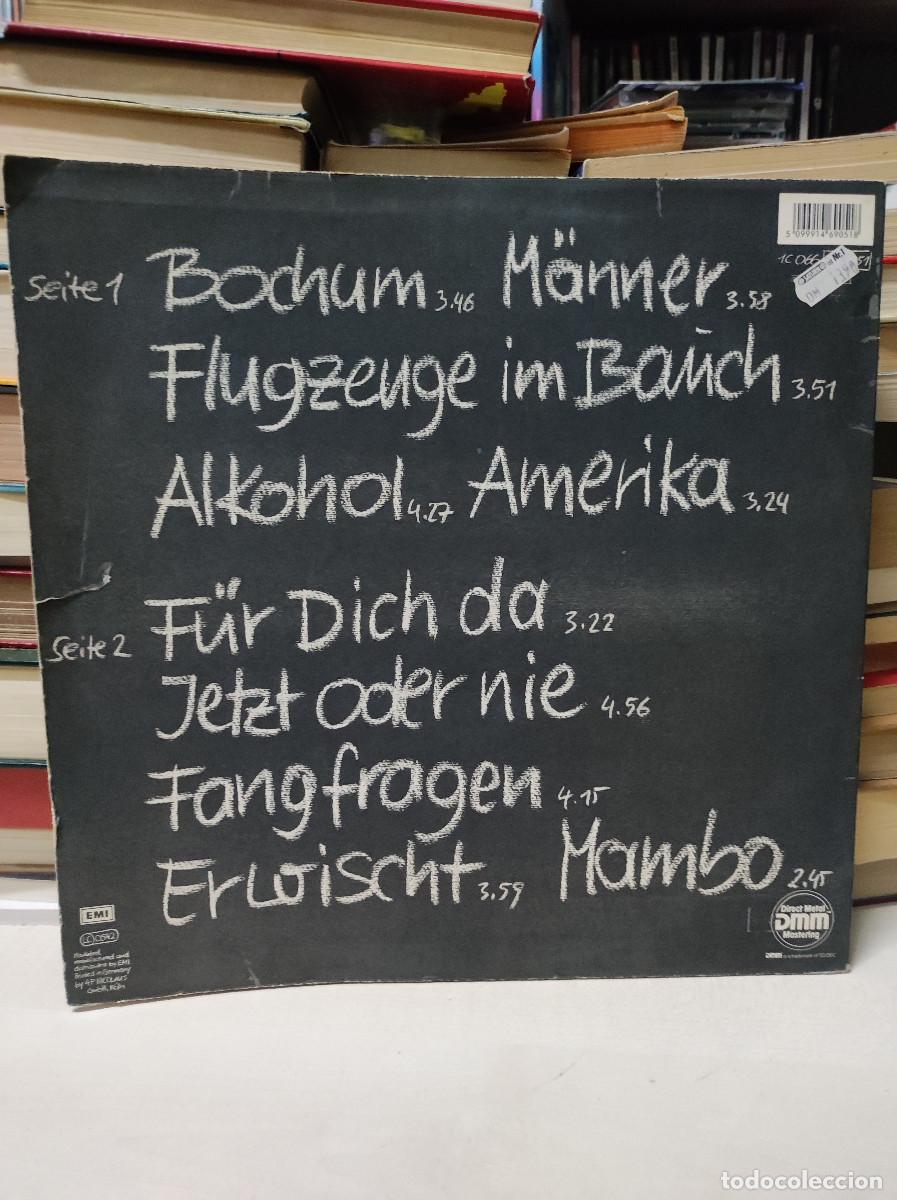 5 099914 690518
1C 066
51
Seite 1 Bochum 3.46 Männer 3.58
Flugzeuge im Bauch 3.51
Alkohol 4.27 Amerika 3.24
Seite 2 Für Dich da 3.22
Jetzt oder nie 4.56
Fangfragen 4.15
Erwischt 3.59 Mambo 2.45
EMI
LC 0542
manufactured and
distributed by EMI
Printed in Germany
by 4P NICOLAUS
GmbH, Köln
Direct Metal
DMM
Mastering
DMM is a trademark of TELDEC
todocoleccion